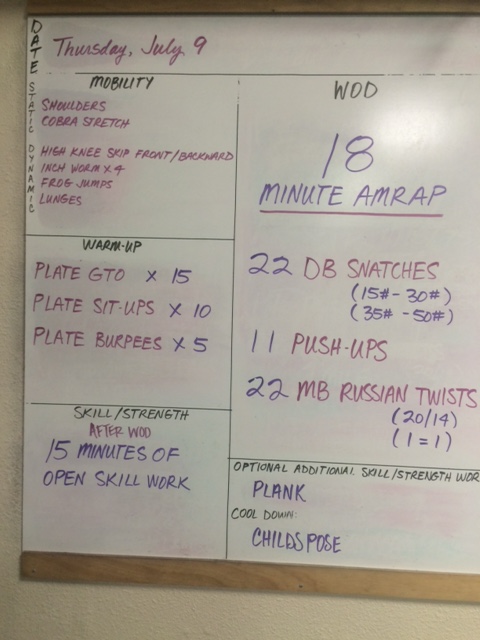 DATE
Thursday, July 9
MOBILITY
STATIC
SHOULDERS
COBRA STRETCH
DYNAMIC
HIGH KNEE SKIP FRONT/BACKWARD
INCH WORM X 4
FROG JUMPS
LUNGES
WARM-UP
PLATE GTO X 15
PLATE SIT-UPS X 10
PLATE BURPEES X 5
SKILL/STRENGTH
AFTER WOD
15 MINUTES OF
OPEN SKILL WORK
WOD
18
MINUTE AMRAP
22 DB SNATCHES
(15#-30#)
(35#-50#)
11 PUSH-UPS
22 MB RUSSIAN TWISTS
(20/14)
(1=1)
OPTIONAL ADDITIONAL SKILL/STRENGTH WOR
PLANK
COOL DOWN:
CHILDS POSE